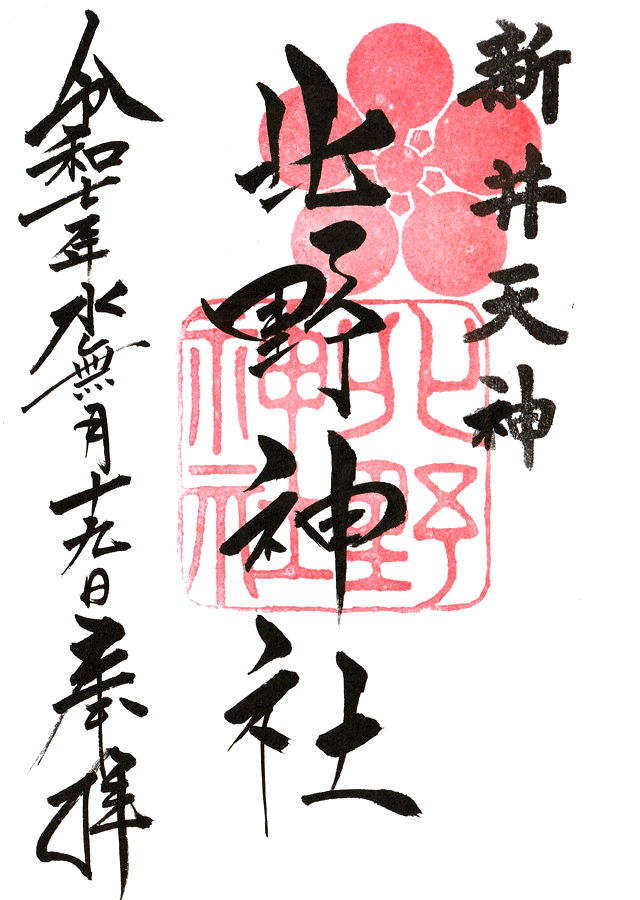 新井天神
北野神社
北野神社
令和七年水無月十九日奉拝